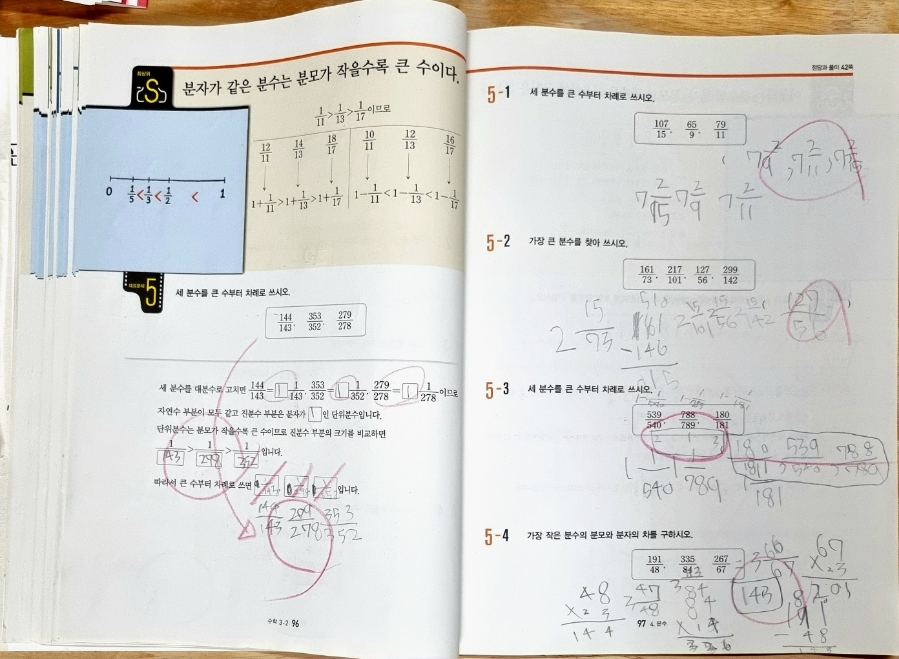 최상위
S
분자가 같은 분수는 분모가 작을수록 큰 수이다.
1/11 > 1/13 > 1/17 이므로
12/11 14/13 18/17 10/11 12/13 16/17
1+1/11 > 1+1/13 > 1+1/17 1-1/11 < 1-1/13 < 1-1/17
0 1/5 < 1/3 < 1/2 < 1
대표문제
5
세 분수를 큰 수부터 차례로 쓰시오.
144/143, 353/352, 279/278
세 분수를 대분수로 고치면 144/143 = 1 1/143, 353/352 = 1 1/352, 279/278 = 1 1/278 이므로
자연수 부분이 모두 같고 진분수 부분은 분자가 1 인 단위분수입니다.
단위분수는 분모가 작을수록 큰 수이므로 진분수 부분의 크기를 비교하면
1/143 > 1/298 > 1/352 입니다.
따라서 큰 수부터 차례로 쓰면 입니다.
353/352
수학 3-2 96
정답과 풀이 42쪽
5-1 세 분수를 큰 수부터 차례로 쓰시오.
107/15, 65/9, 79/11
7 2/9, 7 2/11, 7 2/15
7 2/15 7 2/9 7 2/11
5-2 가장 큰 분수를 찾아 쓰시오.
161/73, 217/101, 127/56, 299/142
2 15/73
127/56
-146
5-3 세 분수를 큰 수부터 차례로 쓰시오.
539/540, 788/789, 180/181
2 1 3
180/181, 539/540, 788/789
1-1/540 1-1/789 1-1/181
5-4 가장 작은 분수의 분모와 분자의 차를 구하시오.
191/48, 335/84, 267/67
143
48
×23
144
3 47/48
67
×23
201
97 4. 분수